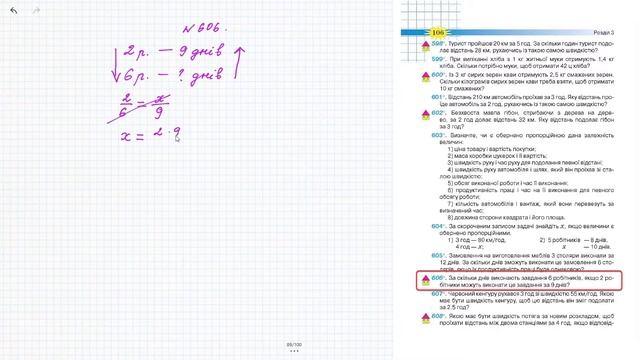 №606.
2 р. — 9 днів
6 р. — ? днів
2/6 = x/9
x = 2 · 9
106 Розділ 3
598°. Турист пройшов 20 км за 5 год. За скільки годин турист подо-
лає відстань 28 км, рухаючись із такою самою швидкістю?
599°. При випіканні хліба з 1 кг житньої муки отримують 1,4 кг
хліба. Скільки потрібно муки, щоб отримати 42 ц хліба?
600°. Із 3 кг сирих зерен кави отримують 2,5 кг смажених зерен.
Скільки кілограмів сирих зерен кави треба взяти, щоб отримати
10 кг смажених?
601°. Відстань 210 км автомобіль проїхав за 3 год. Яку відстань про-
їде автомобіль за 2 год, рухаючись із такою самою швидкістю?
602°. Безхвоста мавпа гібон, стрибаючи з дерева на дере-
во, за 2 год долає відстань 32 км. Яку відстань подолає гібон
за 3 год?
603°. Визначте, чи є обернено пропорційною дана залежність
величин:
1) ціна товару і вартість покупки;
2) маса коробки цукерок і її вартість;
3) швидкість руху і час руху для подолання певної відстані;
4) швидкість руху автомобіля і шлях, який він проїхав зі ста-
лою швидкістю;
5) обсяг виконаної роботи і час її виконання;
6) продуктивність праці і час на її виконання для певного
обсягу роботи;
7) кількість автомобілів і вантаж, який вони перевезуть за
визначений час;
8) довжина сторони квадрата і його площа.
604°. За скороченим записом задачі знайдіть x, якщо величини є
обернено пропорційними.
1) 3 год — 80 км/год, 2) 5 робітників — 8 днів,
4 год — x; x — 10 днів.
605°. Замовлення на виготовлення меблів 3 столяри виконали за
12 днів. За скільки днів зможуть виконати це замовлення 6 сто-
лярів, якщо їх продуктивність праці буде однаковою?
606°. За скільки днів виконають завдання 6 робітників, якщо 2 ро-
бітники можуть виконати це завдання за 9 днів?
607°. Червоний кенгуру рухався 3 год зі швидкістю 55 км/год. Якою
має бути швидкість кенгуру, щоб цю відстань він зміг подолати
за 2,5 год?
608°. Якою має бути швидкість потяга за новим розкладом, щоб
проїхати відстань між двома станціями за 4 год, якщо відповід-
89/100